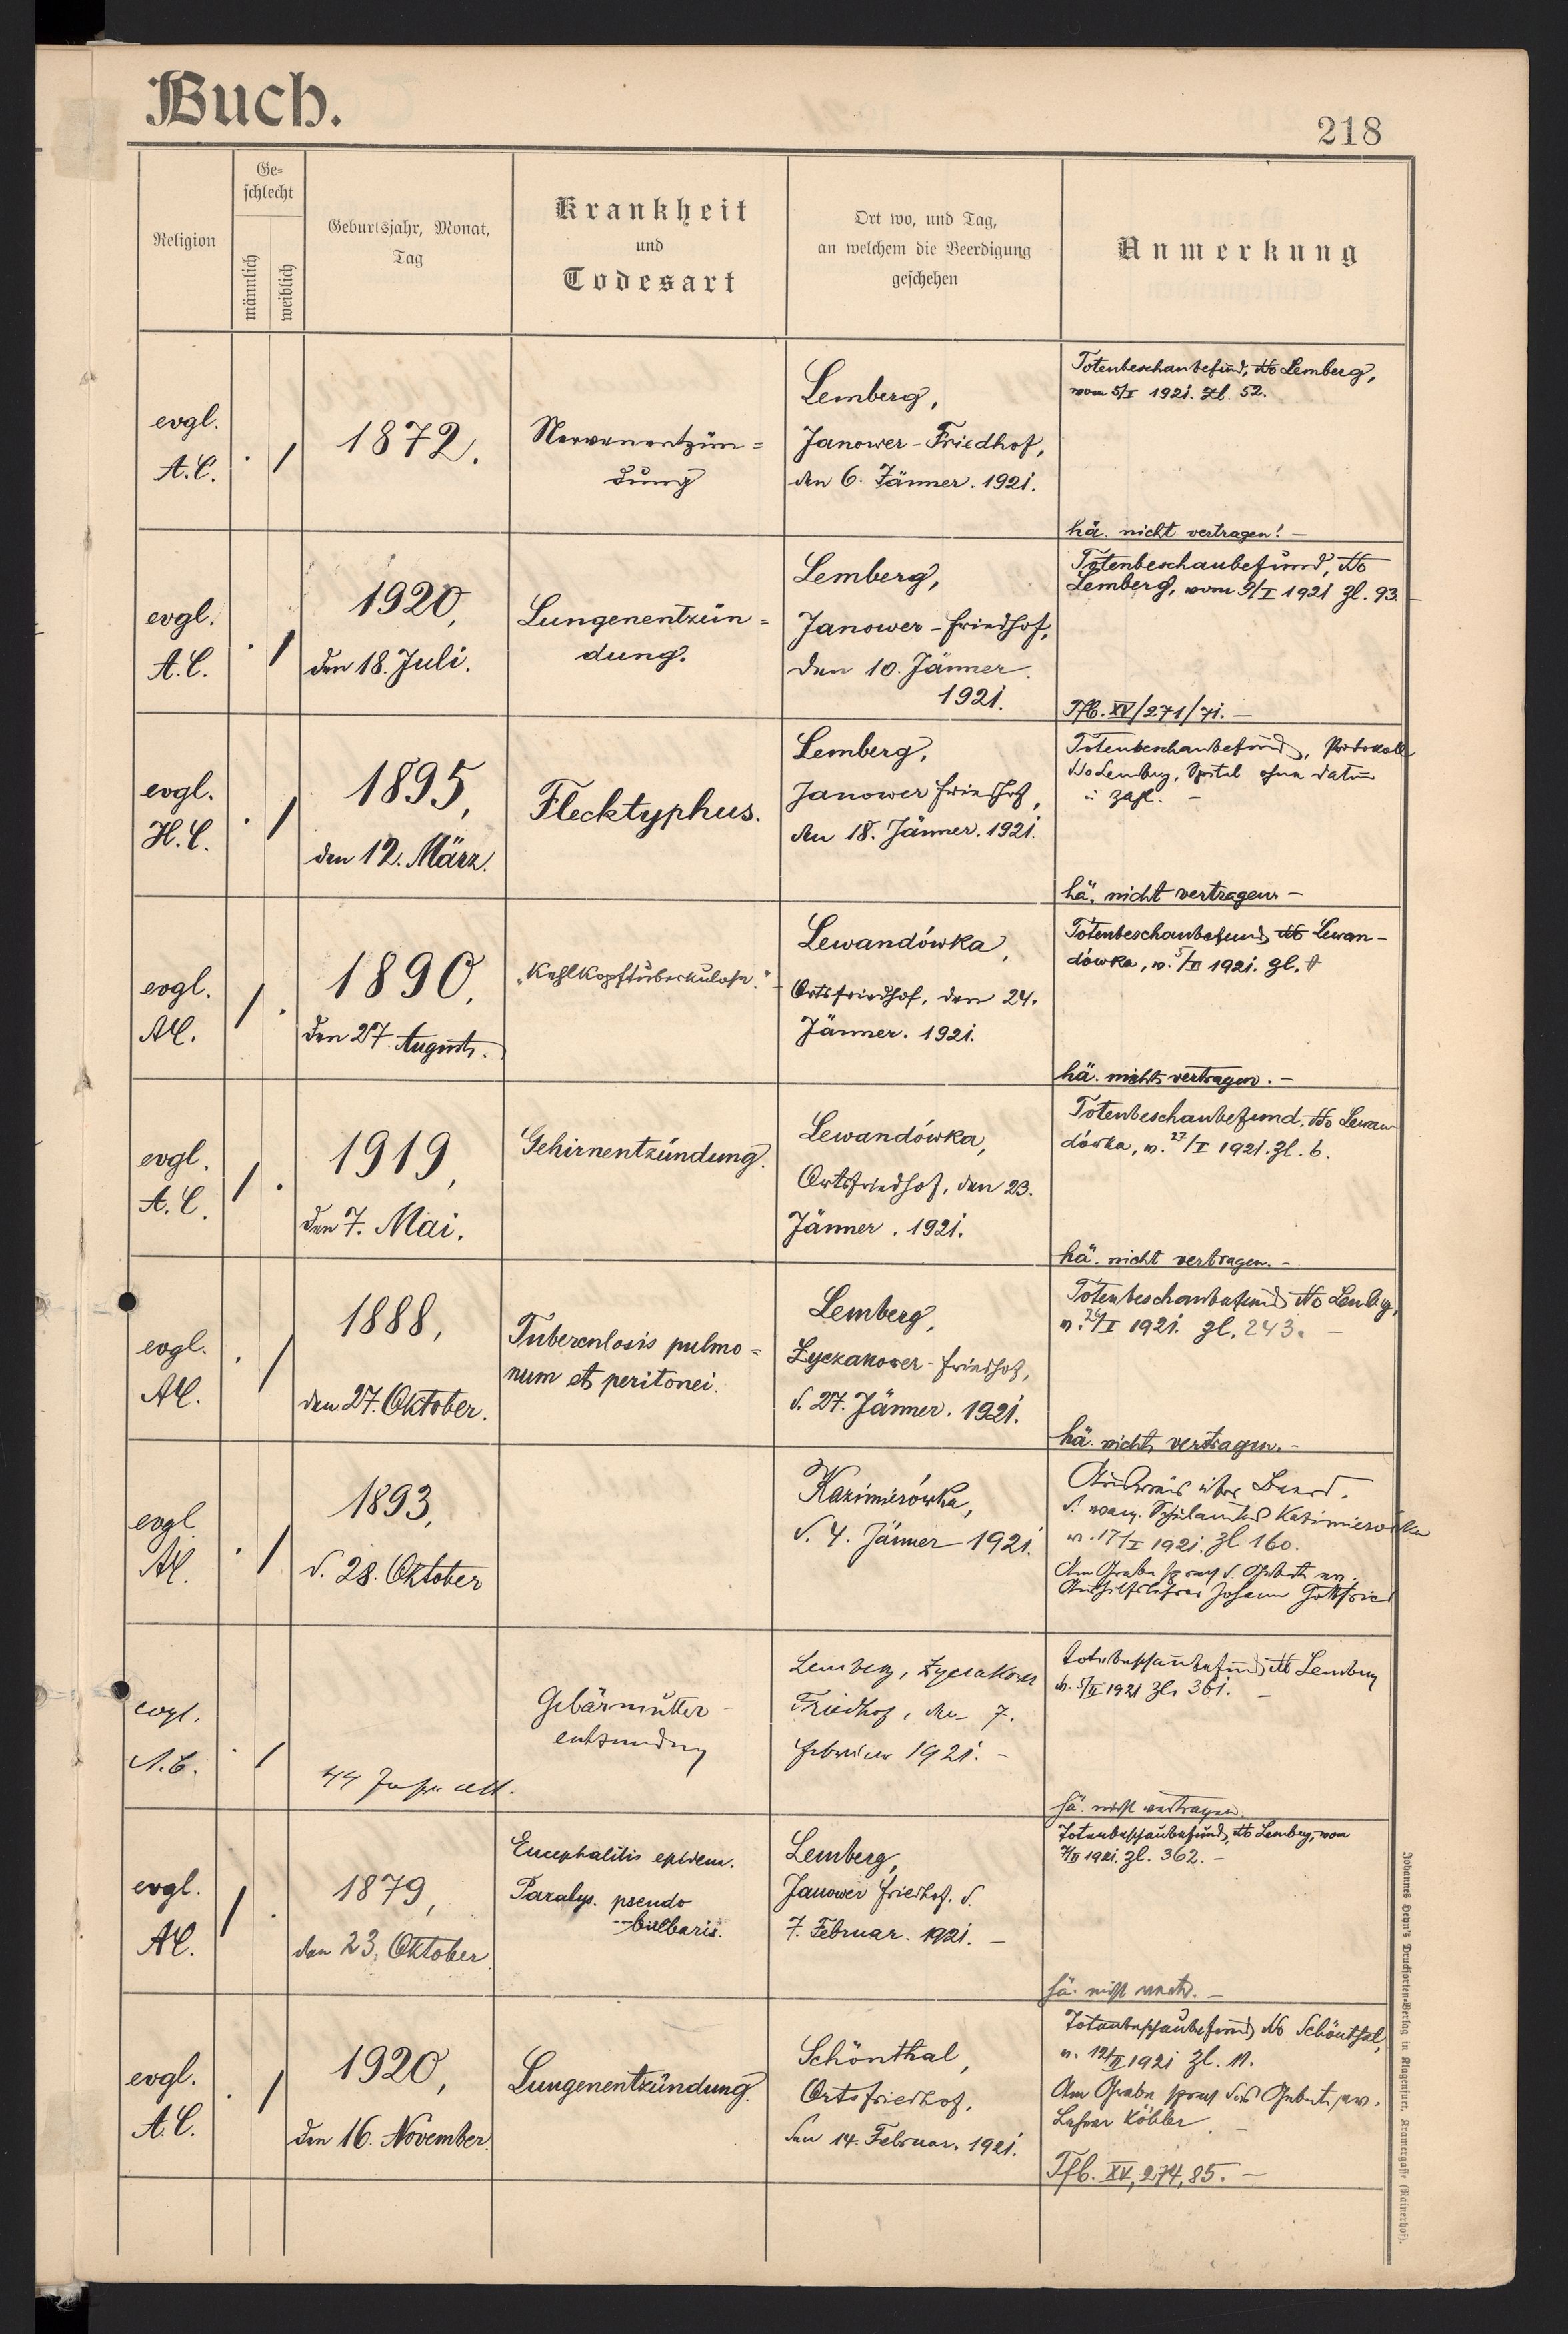 Buch.
218
Religion
Ge-
schlecht
männlich
weiblich
Geburtsjahr, Monat,
Tag
Krankheit
und
Todesart
Ort wo, und Tag,
an welchem die Beerdigung
geschehen
Anmerkung
evgl.
A.C.
1872.
Nervenentzün=
dung
Lemberg,
Janower-Friedhof,
den 6. Jänner. 1921.
Totenbeschaubefund, Lemberg,
vom 5/I 1921. Zl. 52.
hä. nicht vertragen! –
evgl.
A.C.
1920,
den 18. Juli.
Lungenentzün=
dung.
Lemberg,
Janower-Friedhof,
den 10. Jänner.
1921.
Totenbeschaubefund,
Lemberg, vom 9/I 1921 Zl. 93.
Tfb. XV/271/71. –
evgl.
H.C.
1895,
den 12. März.
Flecktyphus.
Lemberg,
Janower Friedhof,
den 18. Jänner. 1921.
Totenbeschaubefund, Protokoll
Lemberg, Spital ohne Datum
u Zahl. –
hä. nicht vertragen. –
evgl.
AC.
1890,
den 27. August.
„Kehlkopftuberkulose."
Lewandówka,
Ortsfriedhof, den 24.
Jänner. 1921.
Totenbeschaubefund Lewan-
dówka, v. 1921. Zl.
hä. nicht vertragen. –
evgl.
A.C.
1919,
den 7. Mai.
Gehirnentzündung.
Lewandówka,
Ortsfriedhof, den 23.
Jänner. 1921.
Totenbeschaubefund, Lewan
dówka, v. 27/I 1921. Zl. 6.
hä. nicht vertragen. –
evgl.
AC.
1888,
den 27. Oktober.
Tuberculosis pulmo=
num et peritonei.
Lemberg,
Łyczakower-Friedhof,
d. 27. Jänner. 1921.
Totenbeschaubefund Lemberg,
v. 26/I 1921. Zl. 243. –
hä. nicht vertragen. –
evgl.
AC.
1893,
d. 28. Oktober
Kazimierówka,
d. 4. Jänner 1921.
Ausweis über Beerd.
d. evang. Schulamtes Kazimierówka
v. 17/I 1921. Zl 160.
Am Grabe sprach d. Gebete ev.
Aushilfslehrer Johann Gottfried
evgl.
A.C.
44 Jahre alt.
Gebärmutter-
entzündung
Lemberg, Łyczakower
Friedhof, den 7.
Februar 1921. –
Totenbeschaubefund Lemberg
v. 5/II 1921 Zl. 361. –
hä. nicht vertragen.
evgl.
AC.
1879,
den 23. Oktober
Encephalitis epidem.
Paralys. pseudo
bulbaris.
Lemberg,
Janower Friedhof. d.
7. Februar. 1921. –
Totenbeschaubefund, Lemberg, vom
1921. Zl. 362. –
hä. nicht
evgl.
A.C.
1920,
den 16. November.
Lungenentzündung.
Schönthal,
Ortsfriedhof,
den 14. Februar. 1921.
Totenbeschaubefund Schönthal,
v. 12/II 1921 Zl. 11.
Am Grabe sprach das Gebet, ev.
Lehrer Köhler. –
Tfb. XV, 274, 85. –
Johannes Heyn's Drucksorten-Verlag in Klagenfurt, Kramergasse (Rainerhof).